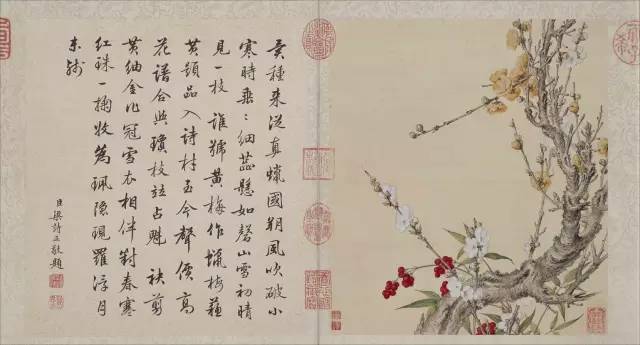 異種來從真蠟國朔風吹破小
寒時垂〻細蕊懸如磬山雪初晴
見一枝 誰號黃梅作蠟梅蘓
黃題品入詩材至今聲價高
花譜合與瓊枝竝占魁 袂剪
黃紬金冠雪衣相伴對春寒
紅珠一掬收為珮隱現羅浮月
未殘
臣梁詩正敬題